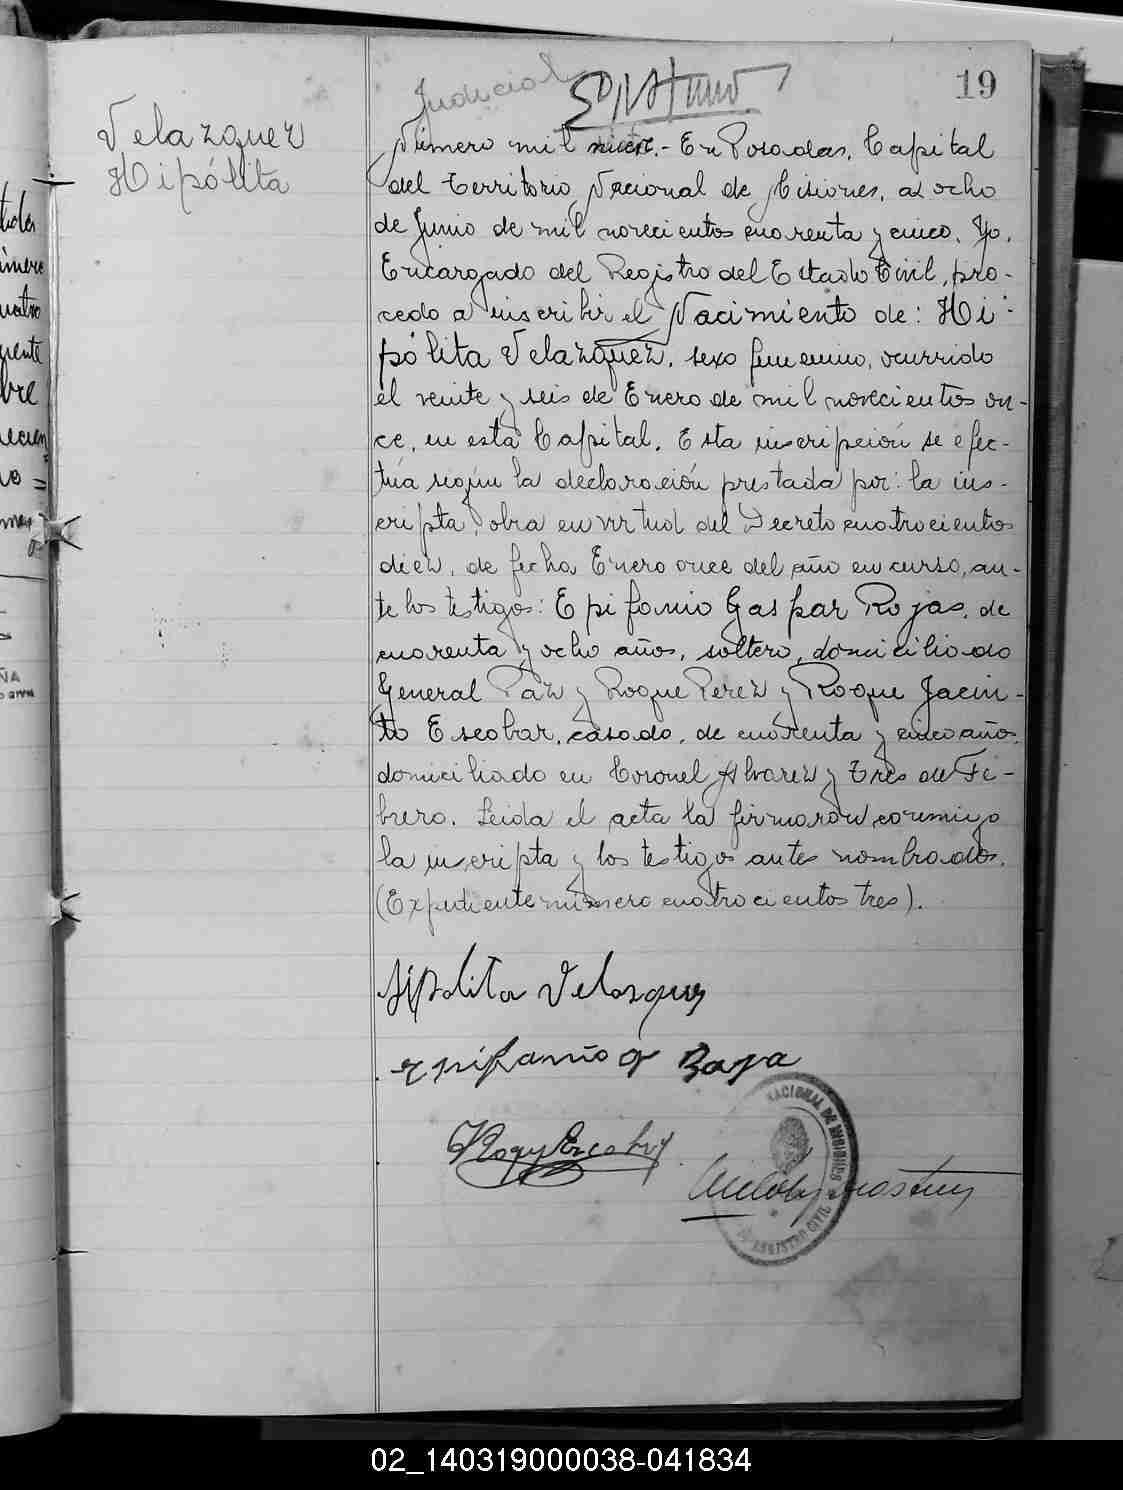 19
Judicial
Velazquez
Hipólita
Número mil siete.- En Posadas, Capital
del Territorio Nacional de Misiones, a ocho
de Junio de mil novecientos cuarenta y cinco. Yo,
Encargado del Registro del Estado Civil, pro-
cedo a inscribir el Nacimiento de: Hi-
pólita Velazquez, sexo femenino, ocurrido
el veinte y seis de Enero de mil novecientos on-
ce, en esta Capital. Esta inscripción se efec-
túa según la declaración prestada por: la ins-
cripta, obra en virtud del Decreto cuatrocientos
diez, de fecha Enero once del año en curso, an-
te los testigos: Epifanio Gaspar Rojas, de
cuarenta y ocho años, soltero, domiciliado
General Paz y Roque Perez y Roque Jacin-
to Escobar, casado, de cuarenta y cinco años,
domiciliado en Coronel Alvarez y Tres de Fe-
brero. Leida el acta la firmaron conmigo
la inscripta y los testigos antes nombrados.
(Expediente número cuatrocientos tres).
Hipolita Velazquez
Epifanio G Roja
NACIONAL DE MISIONES
REGISTRO CIVIL
02_140319000038-041834